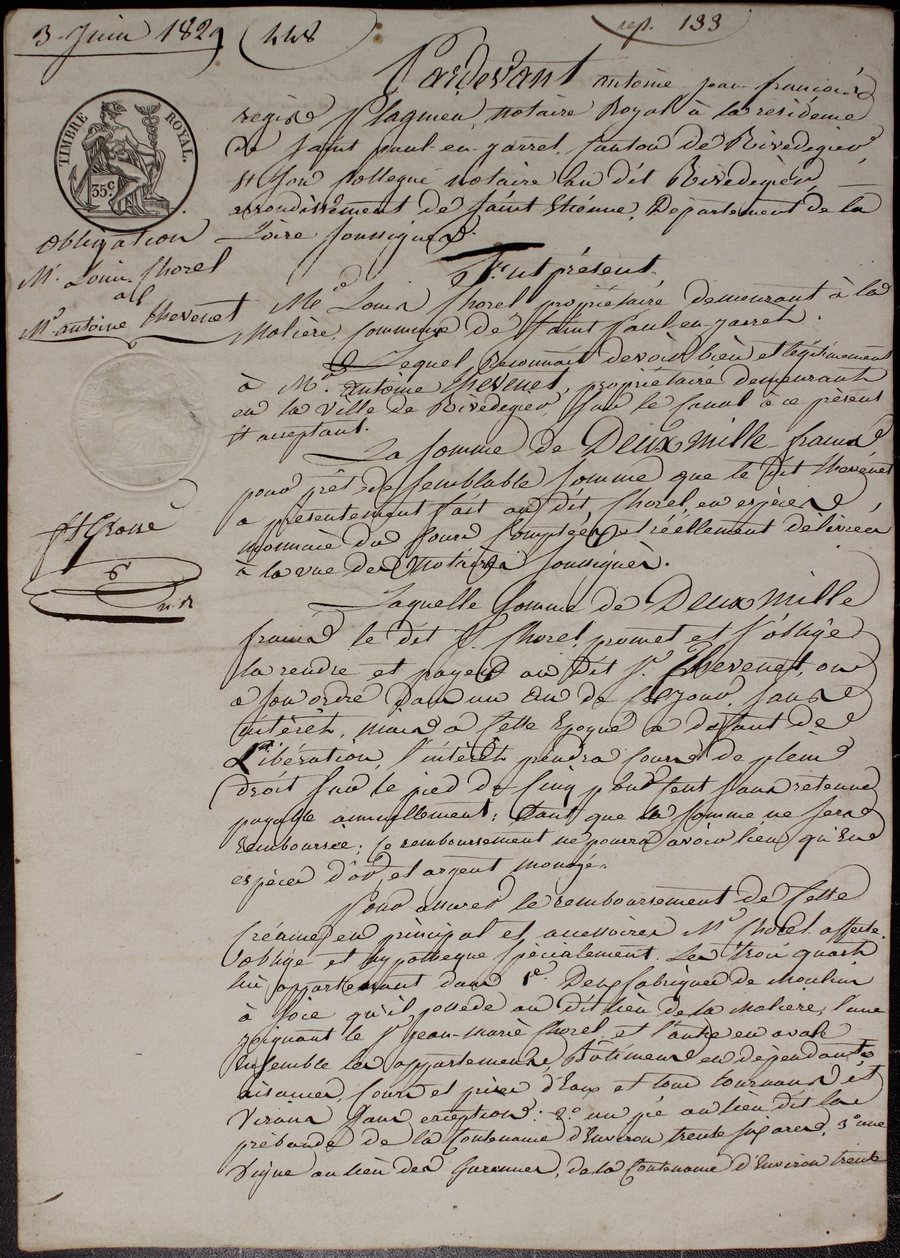 3 Juin 1829
448
rep. 133
Pardevant Antoine jean françois
régis Flagmeu, notaire Royal à la résidence
de Saint paul-en-jarret, Canton de Rivedegier
et Son Collegue notaire au dit Rivedegier,
arrondissement de Saint Etienne, Departement de la
Loire Soussignés.
TIMBRE ROYAL.
35 C.
Obligation
Mr. Louis Chorel
à
Mr. antoine thevenet
Fut présent.
Mr. Louis Chorel propriétaire demeurant à la
Molière, Commune de Saint Paul-en-jarret.
Lequel Reconnait devoir bien et légitimement
à Mr. Antoine Thevenet, propriétaire demeurant
en la Ville de Rivedegier Sur le Canal à ce présent
et acceptant.
La Somme de Deux Mille francs
pour prêt de Semblable Somme que le dit thevenet
a présentement fait au dit Chorel, en espèces
monnaie du Cours Comptées et réellement délivrées
à la vue des Notaires Soussignés.
ft Grosse
Laquelle Somme de Deux Mille
francs le dit S. Chorel, promet et s'oblige
la rendre et payer au Dit Sr. Thevenet, ou
à son ordre Dans un an de Ce jour, Sans
intérêt, mais à Cette Epoque à défaut de
Libération, l'intérêt prendra Cours de plein
droit Sur le pied de Cinq pour Cent Sans retenue
payable annuellement; Tant que la Somme ne Sera
Remboursée; Ce remboursement ne pourra avoir lieu qu'En
espèces d'or et argent monoyé.
Pour assurer le remboursement de Cette
Créance en principal et accessoires Mr. Chorel affecte
oblige et hypotheque Spécialement. Les trois quarts
lui appartenant dans 1o Deux fabriques de moulin
à Soie qu'il possede au dit lieu de la Moliere, l'une
joignant le Sr. Jean-Marie Chorel et l'autre en avale
Ensemble les appartements, Bâtiments en dépendants
aisances, Cours et prises d'Eaux et tous tournans et
Virans Sans exception: 2o un pré au lieu dit la
prébande de la Contenance d'Environ trente Six ares, 3o une
Vigne au lieu des , de la Contenance d'Environ trente